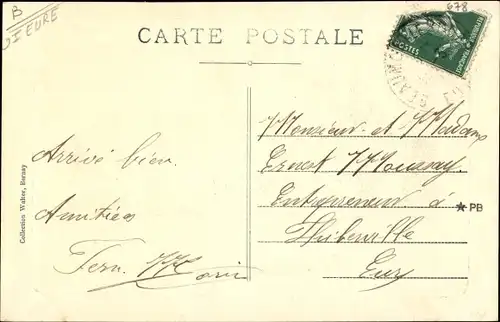 B
EURE
678
CARTE POSTALE
POSTES
BEAUM
Arrivé bien.
Amitiés
Fern.
Monsieur et Madame
Ernest
Entrepreneur à
Thiberville
Eure
★PB
Collection Walter, Bernay